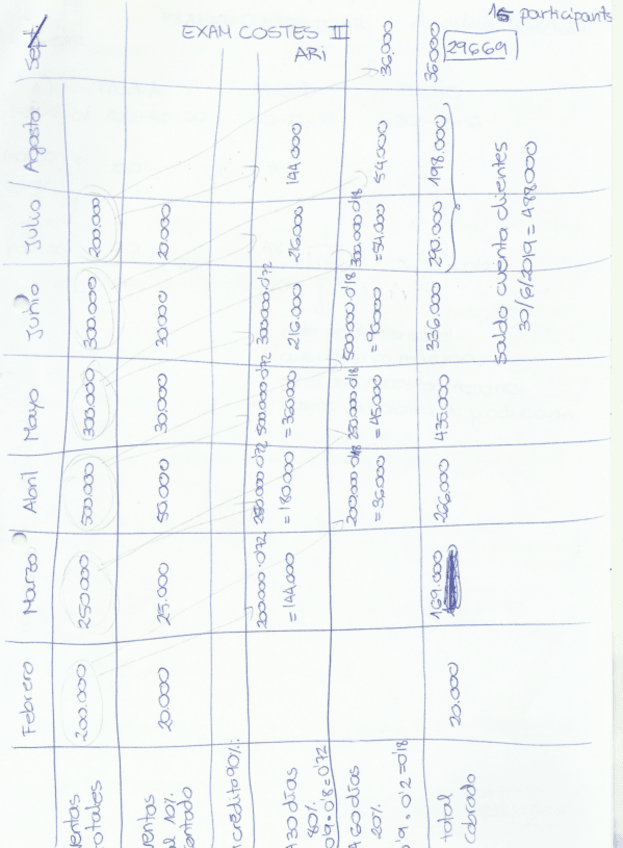 EXAM COSTES II
ARi
15 participants
29669
Febrero Marzo Abril Mayo Junio Julio Agosto Sept.
ventas totales 200.000 250.000 500.000 300.000 300.000 200.000
ventas al 10% contado 20.000 25.000 50.000 30.000 30.000 20.000
crédito 90%
A 30 días 80% 0'9·0'8=0'72
200000·0'72 =144.000
250.000·0'72 =180.000
500.000·0'72 =360000
300000·0'72 216.000
216.000
144.000
A 60 días 20% 0'9·0'2=0'18
200.000·0'18 =36.000
250.000·0'18 =45.000
500000·0'18 =90000
300.000·0'18 =54.000
54.000
36.000
total cobrado 20.000 169.000 266.000 435.000 336.000 290.000 198.000 36.000
Saldo cuenta clientes
30/6/2019 = 488.000